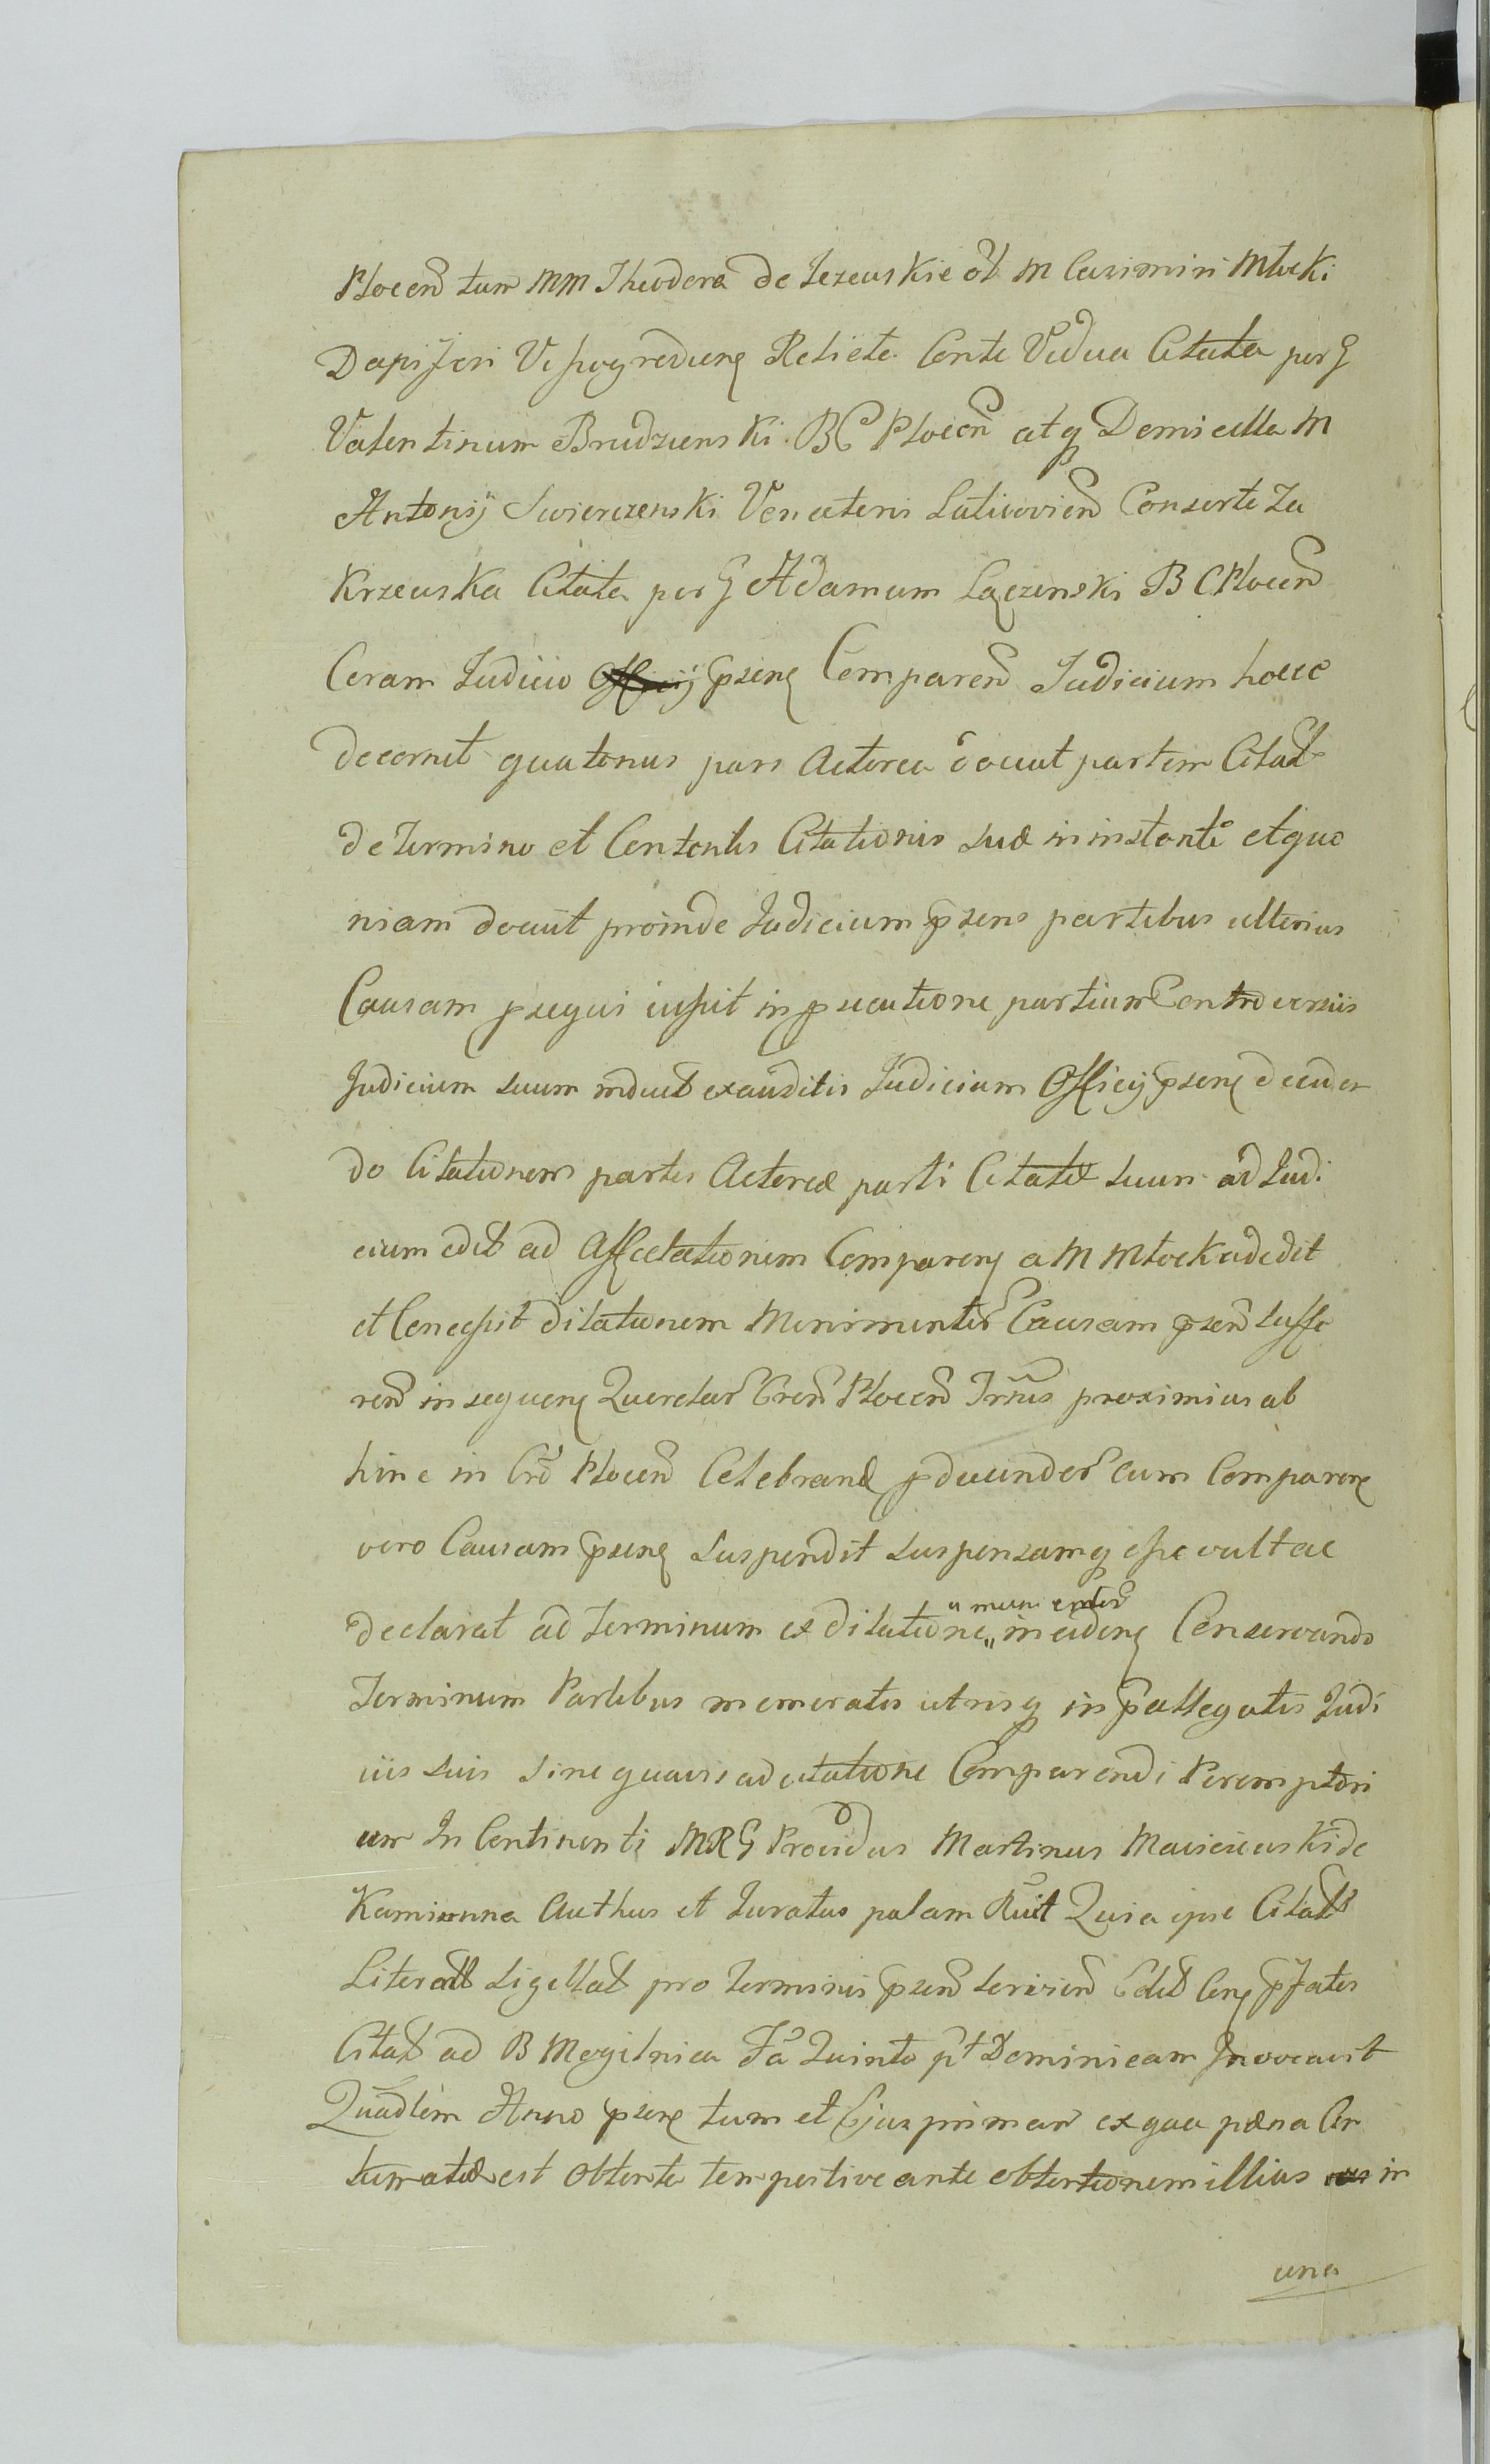 Plocen tum MM Theodora de Jezewskie olt M Casimiri Młocki
Dapiferi Vyszogrodiens Relicta Conte Vidua Citata per G
Valentinum Brudzienski BC Plocen atq Domicella M
Antonij Swierczenski Venatoris Laticovien Consorte Za
Krzewska Citata per G Adamum Łączenski BC Plocen
Coram Judicio Officij psens Comparen Judicium hocce
decernit quatenus pars Actorea doceat partem Citat
de Termino et Contentis Citationis suæ in instanti et quo
niam docuit proinde Judicium psens partibus ulterius
Causam psequi iussit in psecutione partium Controversiis
Judicium suum induct exauditis Judicium Officij psens deciden
do Citationem partis Actoreæ parti Citatæ suum ad Judi
cium edit ad Affectationem Comparens a M Młocka dedit
et Concessit dilationem Munimentor Causam psen suffe
ren in sequens Querelar Gren Plocen Trnis proximius ab
hinc in Crd Plocen Celebrand pducendor cum Comparens
vero Causam psens suspendit suspensamq esse vult ac
declarat ad terminum ex dilatione munimentor inciden Conservando
Terminum Partibus memoratis utrisq in pallegatis Judi
ciis suis sine quavis adcitatione Comparendi Peremptori
um In Continenti MRG Providus Martinus Maciejewski de
Kamionna Authus et Juratus palam Rcuit Quia ipse Citatt
Literatt Ligellat pro Terminis psen servien Edit Cens pfatis
Citat ad B Mogilnica Fa Quinta pt Dominicam Invocavit
Quadlem Anno psens tum et Ejus primar ex qua pæna Con
tumatiæ est obtenta tempestive ante obtentionem illius in
una